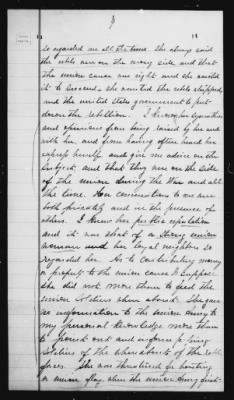 3
18
so regarded in all the time. She always said
the rebels are on the wrong side and that
the union cause was right and she wanted
it to succeed, she wanted the rebels whipped,
and the united States government to put
down the rebellion. I know her sympathies
and opinions from being raised by her and
with her, and from having often heard her
express herself and give me advice on the
subject, and that they were on the side
of the union during the war and all
the time. Her conversations to me were
both privately and in the presence of
others. I knew her public reputation
and it was that of a strong union
woman and her loyal neighbors so
regarded her. As to contributing money
or property to the union cause I suppose
she did not more than to feed the
union soldiers when about. She gave
no information to the union army to
my personal knowledge more than
to point out and inform
soldiers of the whereabouts of the rebel
forces. She was threatened for hoisting
a union flag, when the union army first